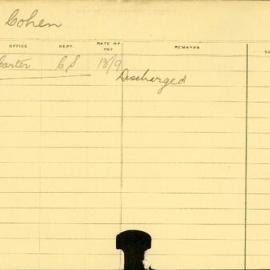 Cohen
OFFICE DEPT. RATE OF PAY REMARKS
Porter C S 18/9 Discharged